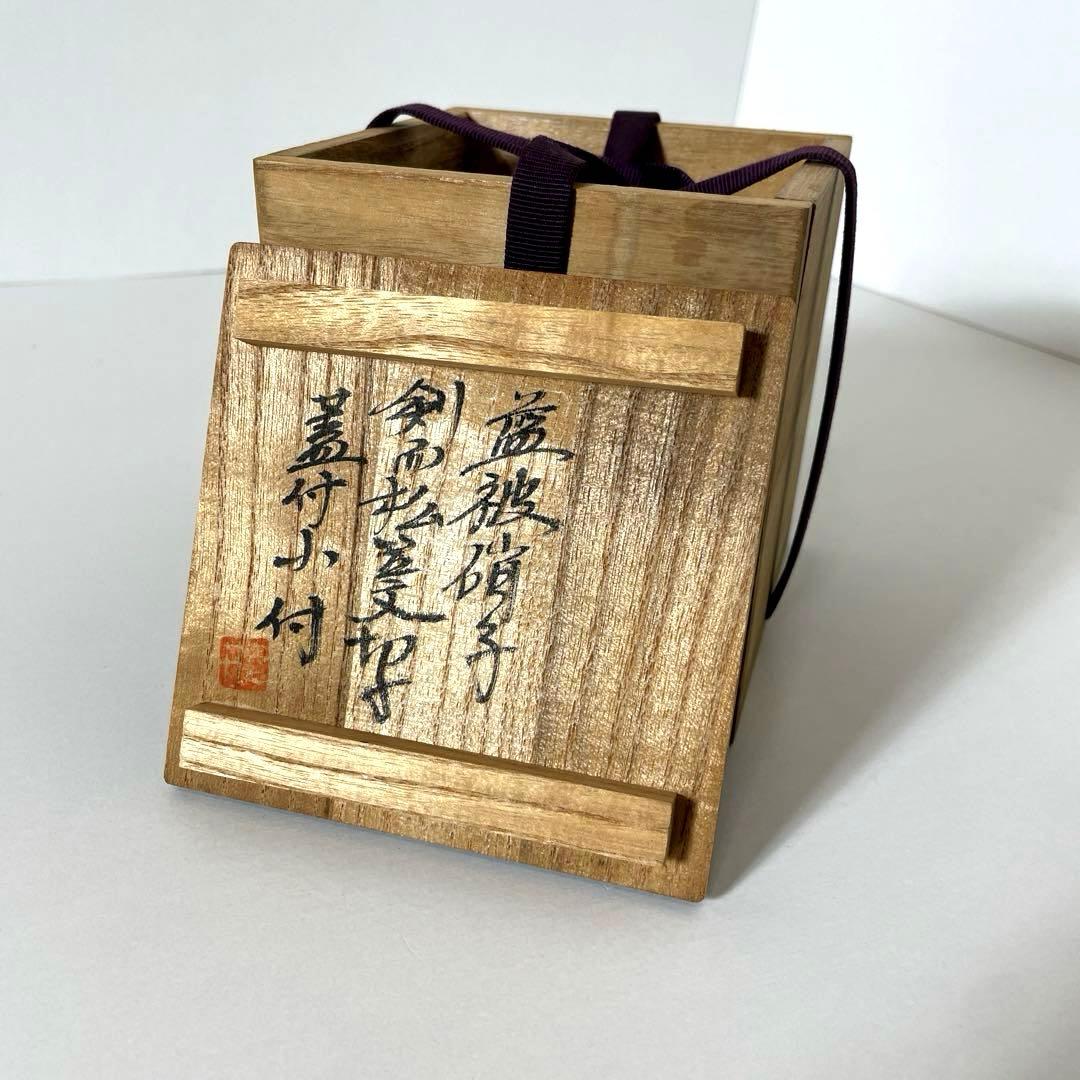 藍被硝子
剣而払菱文切子
蓋付小付